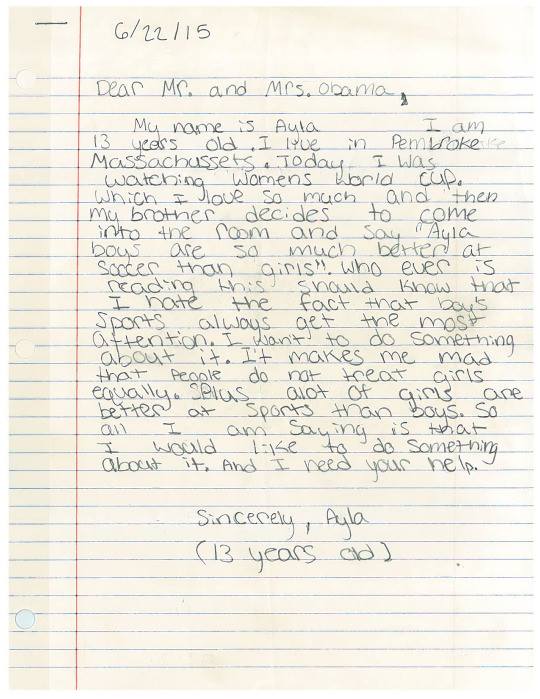 6/22/15
Dear Mr. and Mrs. Obama,
My name is Ayla I am
13 years old. I live in Pembroke
Massachussets. Today I was
watching Womens World cup.
which I love so much and then
my brother decides to come
into the room and say "Ayla
boys are so much better at
soccer than girls". Who ever is
reading this should know that
I hate the fact that boy's
sports always get the most
attention. I want to do something
about it. It makes me mad
that People do not treat girls
equally. Plus alot of girls are
better at sports than boys. So
all I am saying is that
I would like to do something
about it. And I need your help.
Sincerely, Ayla
(13 years old)